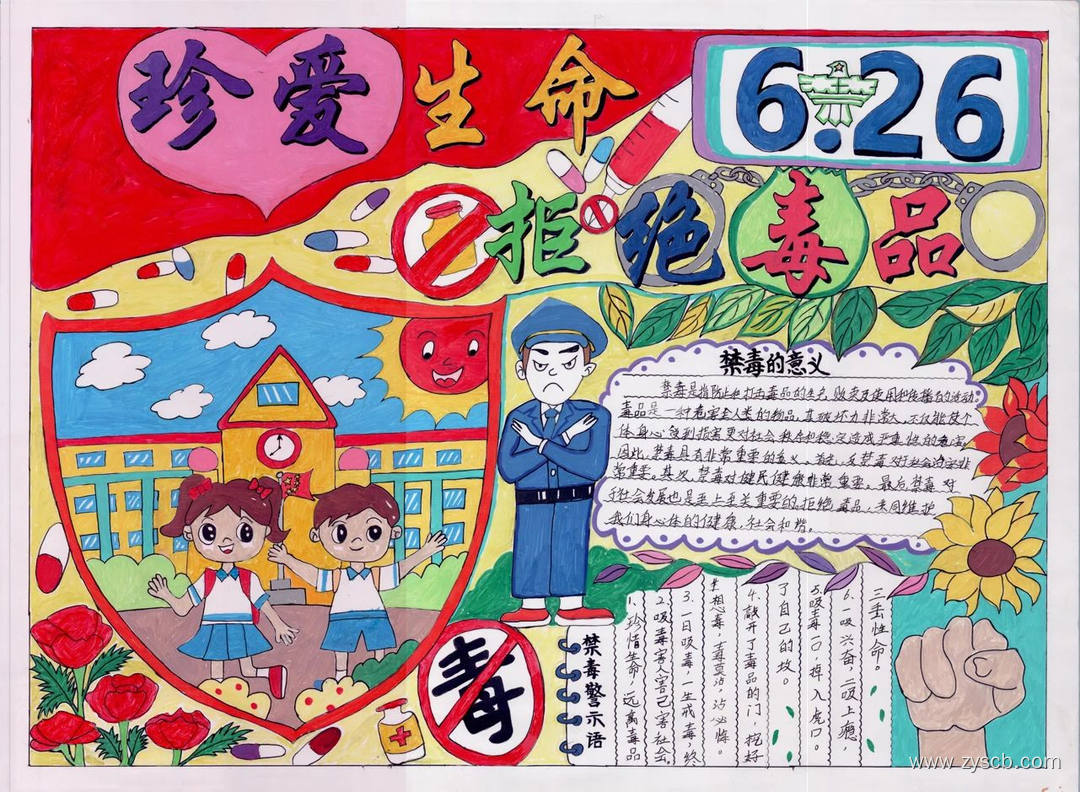 珍爱生命
6.26
拒绝毒品
禁毒的意义
禁毒是指防止和打击毒品的生产、贩卖及使用和传播的活动
毒品是一种危害全人类的物品，其破坏力非常大，不仅能使个
体身心受到损害更对社会秩序和稳定造成严重性的危害
因此，禁毒具有非常重要的意义。首先，反禁毒对社会治安非
常重要。其次，禁毒对健民健康非常重要。最后禁毒对
于社会发展也是至上至关重要的拒绝毒品，共同维护
我们身心体的健康、社会和谐。
毒
禁毒警示语
1、珍惜生命，远离毒品
2、吸毒害人害己害社会
3、一日吸毒，一生戒毒，终
生想毒，毒莫沾，沾必悔。
4、敲开了毒品的门，挖好
了自己的坟。
5、吸毒一口，掉入虎口。
6、一吸兴奋，二吸上瘾，
三丢性命。
www.zyscb.com